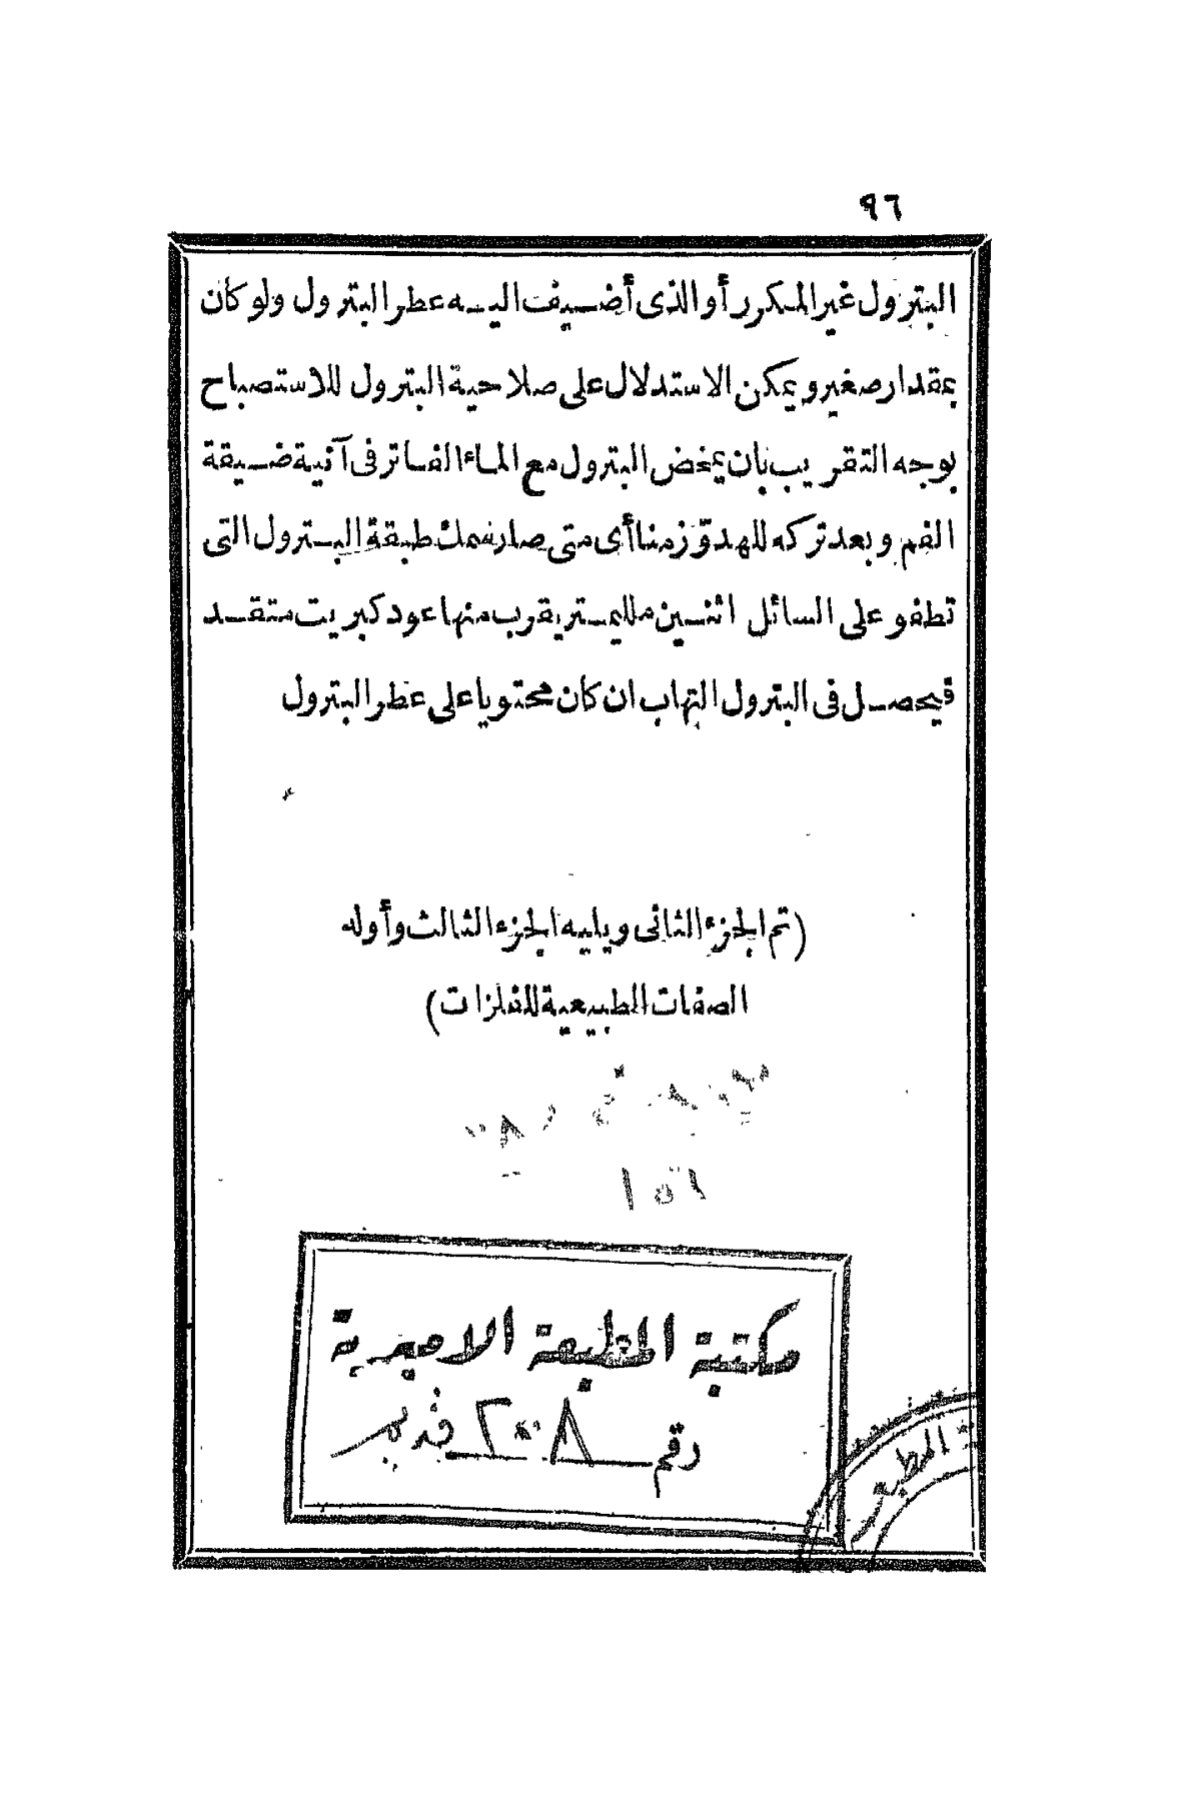 ٩٦
البترول غير المكرر أو الذى أضيف اليه عطر البترول ولو كان
بمقدار صغير ويمكن الاستدلال على صلاحية البترول للاستصباح
بوجه التقريب بان يمخض البترول مع الماء الفاتر فى آنية ضيقة
الفم وبعد تركه للهدوّ زمنا أى متى صار سمك طبقة البترول التى
تطفو على السائل اثنين ملليمتر يقرب منها عود كبريت متقد
فيحصل فى البترول التهاب ان كان محتويا على عطر البترول
(تم الجزء الثانى ويليه الجزء الثالث وأوله
الصفات الطبيعية للفلزات)
مكتبة المطبعة الاميرية
رقم ٢٠٠٨ قديم
المطبع